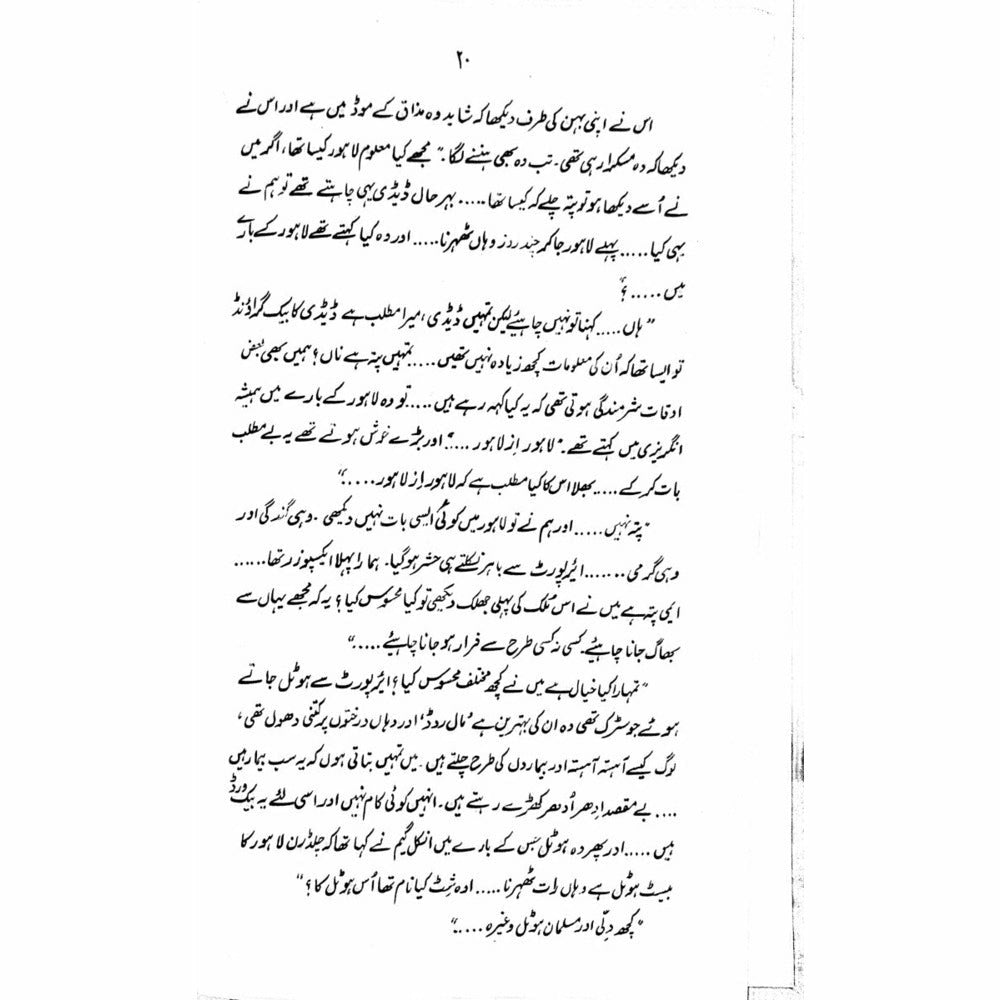 ۲۰
اس نے اپنی بہن کی طرف دیکھا کہ شاید وہ مذاق کے موڈ میں ہے اور اس نے
دیکھا کہ وہ مسکرا رہی تھی۔ تب وہ بھی ہنسنے لگا۔ " مجھے کیا معلوم لاہور کیسا تھا، اگر میں
نے اُسے دیکھا ہو تو پتہ چلے کہ کیسا تھا ..... بہر حال ڈیڈی یہی چاہتے تھے تو ہم نے
یہی کیا ..... پہلے لاہور جا کر چند روز وہاں ٹھہرنا ..... اور وہ کیا کہتے تھے لاہور کے بارے
میں ..... ؟"
" ہاں ..... کہنا تو نہیں چاہیئے لیکن تمہیں ڈیڈی، میرا مطلب ہے ڈیڈی کا بیک گراؤنڈ
تو ایسا تھا کہ اُن کی معلومات کچھ زیادہ نہیں تھیں ..... تمہیں پتہ ہے ناں؟ ہمیں بھی بعض
اوقات شرمندگی ہوتی تھی کہ یہ کیا کہہ رہے ہیں ..... تو وہ لاہور کے بارے میں ہمیشہ
انگریزی میں کہتے تھے۔ " لاہور اِز لاہور ....." اور بڑے خوش ہوتے تھے یہ بے مطلب
بات کر کے ..... بھلا اس کا کیا مطلب ہے کہ لاہور اِز لاہور ....."
" پتہ نہیں ..... اور ہم نے تو لاہور میں کوئی ایسی بات نہیں دیکھی ۔ وہی گندگی اور
وہی گرمی ...... ائیرپورٹ سے باہر نکلتے ہی حشر ہو گیا۔ ہمارا پہلا ایکسپوزر تھا ......
ایمی پتہ ہے میں نے اس ملک کی پہلی جھلک دیکھی تو کیا محسوس کیا؟ یہ کہ مجھے یہاں سے
بھاگ جانا چاہیئے۔ کسی نہ کسی طرح سے فرار ہو جانا چاہیئے ....."
" تمہارا کیا خیال ہے میں نے کچھ مختلف محسوس کیا؟ ائیرپورٹ سے ہوٹل جاتے
ہوئے جو سڑک تھی وہ ان کی بہترین ہے 'مال روڈ' اور وہاں درختوں پر کتنی دھول تھی،
لوگ کیسے آہستہ آہستہ اور بیماروں کی طرح چلتے ہیں۔ میں تمہیں بتاتی ہوں کہ یہ سب بیمار ہیں
.... بے مقصد اِدھر اُدھر کھڑے رہتے ہیں۔ انہیں کوئی کام نہیں اور اسی لئے یہ بیک ورڈ
ہیں ..... اور پھر وہ ہوٹل جس کے بارے میں انکل گیم نے کہا تھا کہ چلڈرن لاہور کا
بیسٹ ہوٹل ہے وہاں رات ٹھہرنا ..... اوہ شِٹ کیا نام تھا اُس ہوٹل کا؟ "
" کچھ دِلّی اور مسلمان ہوٹل وغیرہ ....."